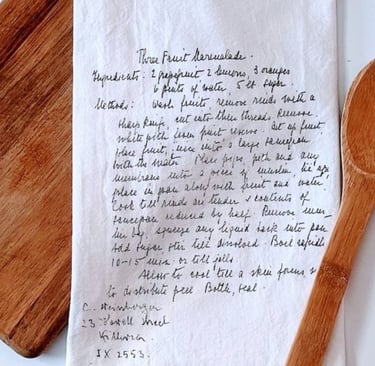 Three Fruit Marmalade.
Ingredients: 2 grapefruit 2 lemons, 3 oranges
6 pints of water, 5 lb sugar.
Method: Wash fruits, remove rinds with a
sharp knife, cut into thin threads. Remove
white pith from fruit remove. Cut up fruit,
place fruit, juice into a large saucepan
with the water. Place pips, pith and any
membrane into a piece of muslin tie
place in pan along with fruit and water.
Cook till rinds are tender & contents of
saucepan reduced by half. Remove
bag, squeeze any liquid back into pan
Add sugar stir till dissolved. Boil rapidly
10-15 mins. or till jells.
Allow to cool till a skin forms,
to distribute peel. Bottle, seal.
23 Street
JX 2553.